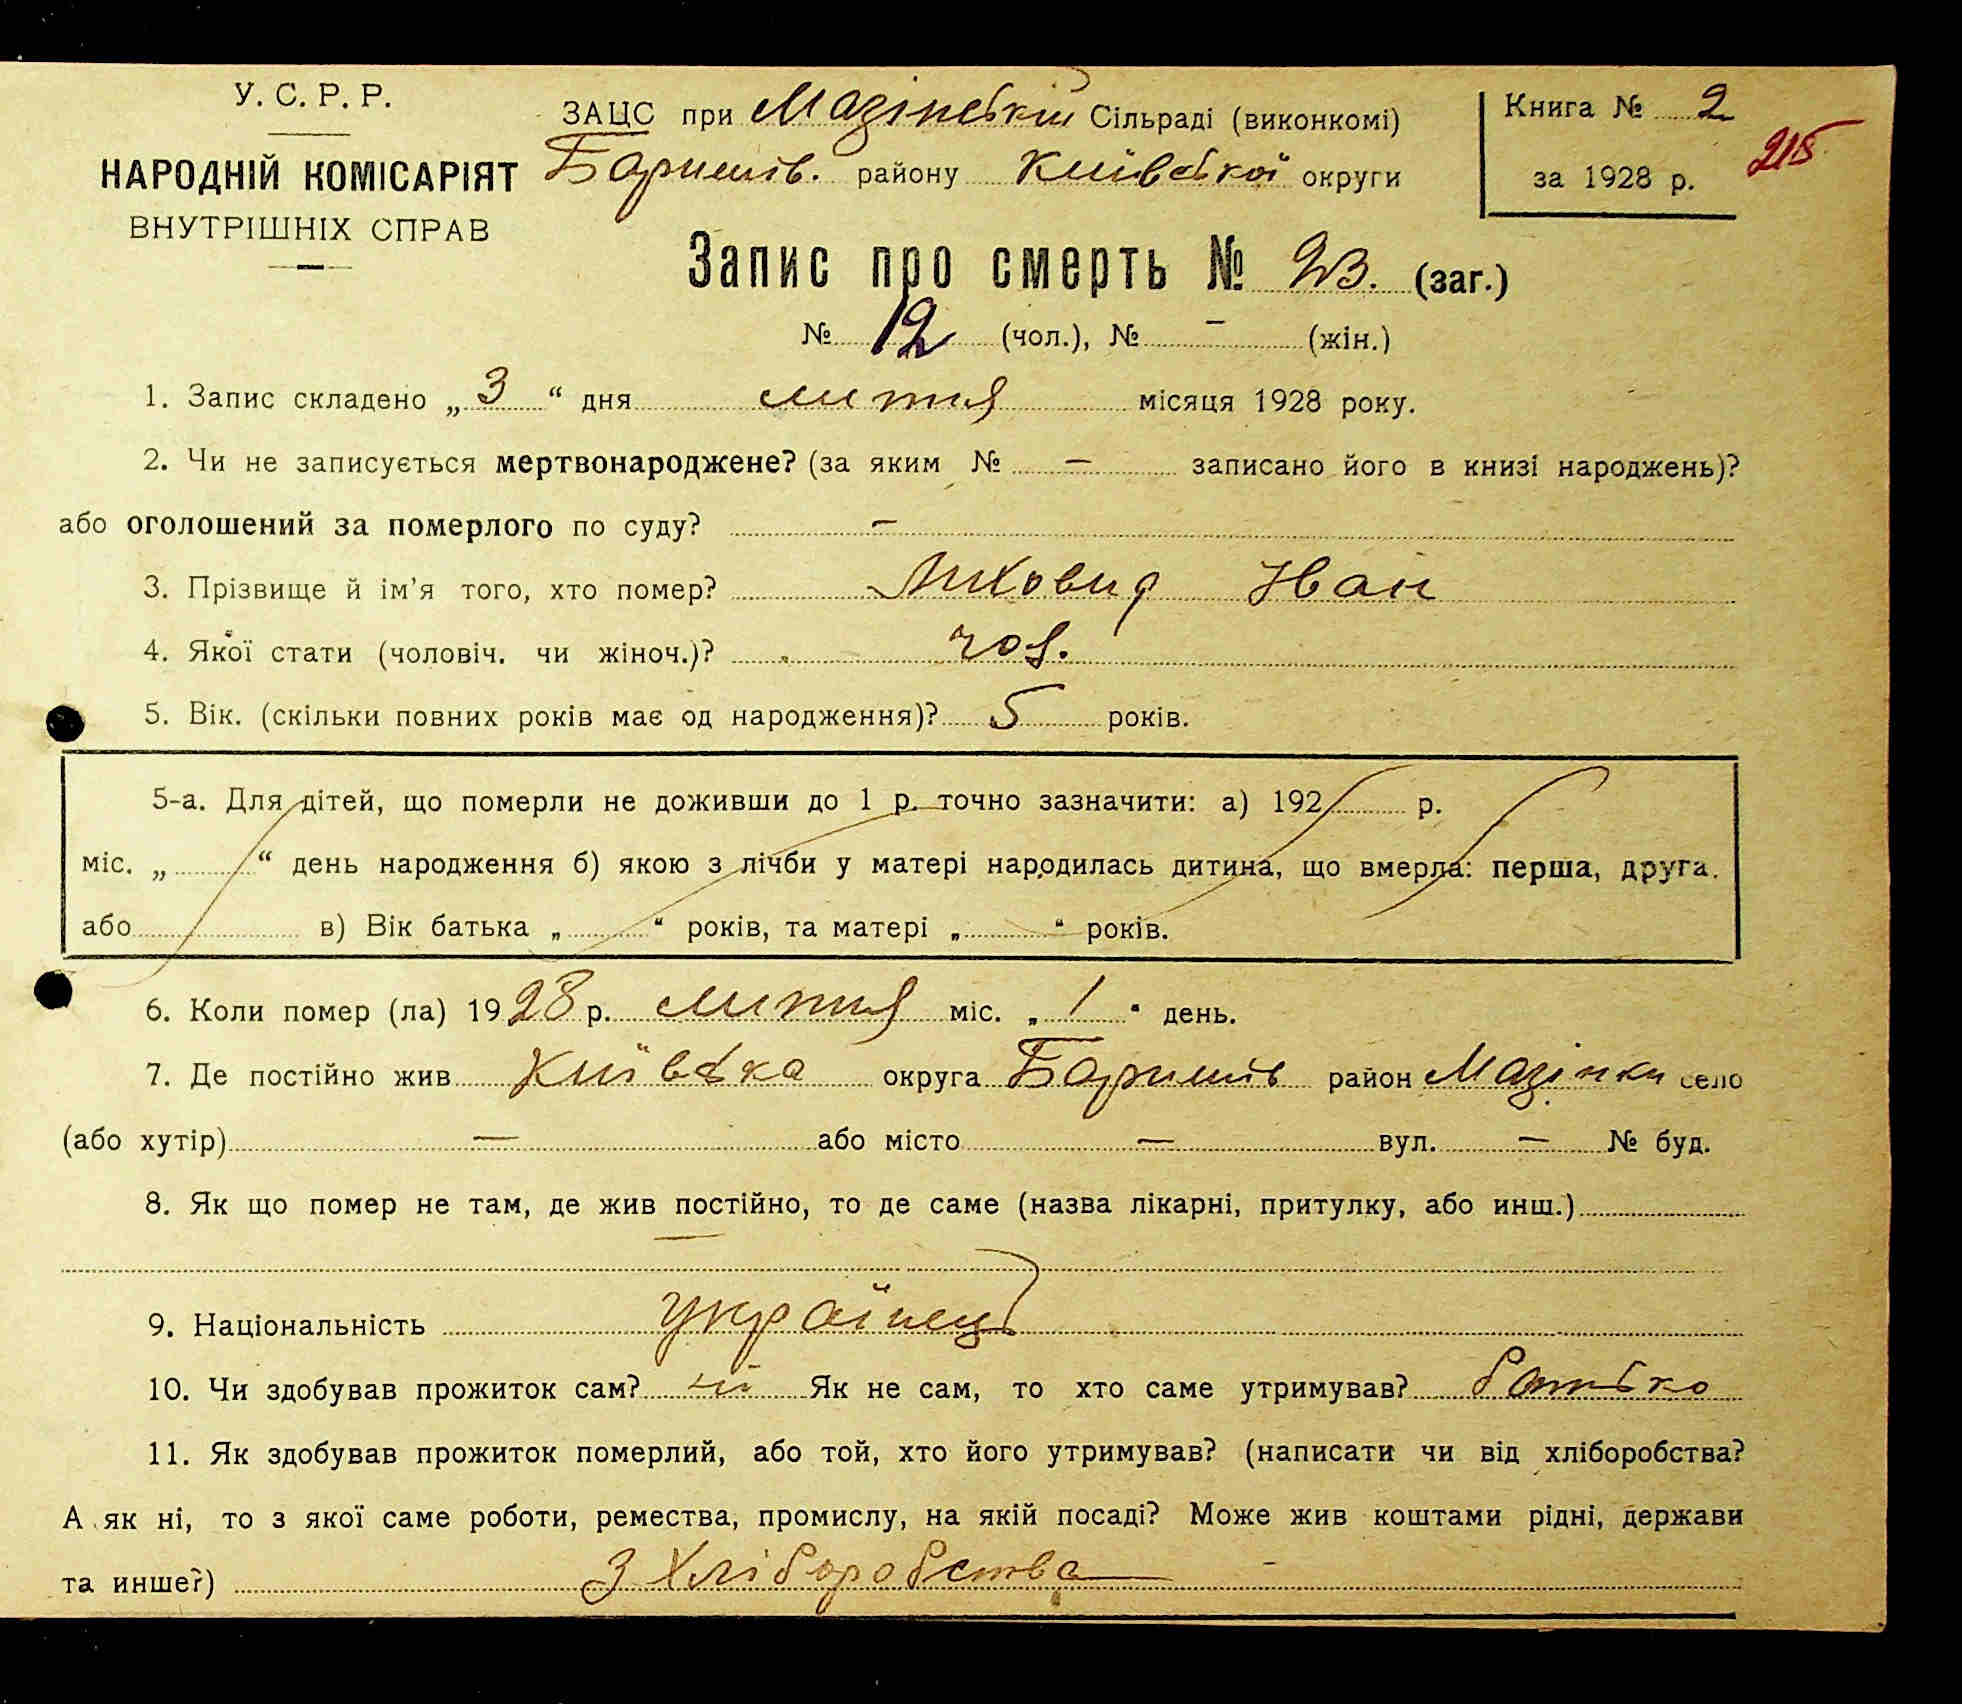 У. С. Р. Р.
НАРОДНІЙ КОМІСАРІЯТ
ВНУТРІШНІХ СПРАВ
ЗАЦС при Мазінській Сільраді (виконкомі)
Баришів. району Київської округи
Книга № 2
за 1928 р.
215
Запис про смерть № 23. (заг.)
№ 12 (чол.), № – (жін.)
1. Запис складено „ 3 “ дня липня місяця 1928 року.
2. Чи не записується мертвонароджене? (за яким № – записано його в книзі народжень)?
або оголошений за померлого по суду? –
3. Прізвище й ім'я того, хто помер? Лиховид Іван
4. Якої стати (чоловіч. чи жіноч.)? чол.
5. Вік. (скільки повних років має од народження)? 5 років.
5-а. Для дітей, що померли не доживши до 1 р. точно зазначити: а) 192 р.
міс. „ “ день народження б) якою з лічби у матері народилась дитина, що вмерла: перша, друга.
або в) Вік батька „ “ років, та матері „ “ років.
6. Коли помер (ла) 1928 р. липня міс. „ 1 “ день.
7. Де постійно жив Київська округа Баришів район Мазінки село
(або хутір) – або місто – вул. – № буд.
8. Як що помер не там, де жив постійно, то де саме (назва лікарні, притулку, або инш.)
–
9. Національність українець
10. Чи здобував прожиток сам? ні Як не сам, то хто саме утримував? батько
11. Як здобував прожиток померлий, або той, хто його утримував? (написати чи від хліборобства?
А як ні, то з якої саме роботи, ремества, промислу, на якій посаді? Може жив коштами рідні, держави
та инше?) З хліборобства –